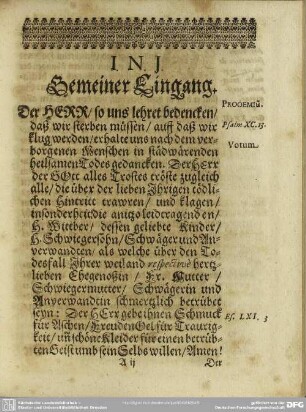 I N J
Gemeiner Eingang.
Der HERR/ so uns lehret bedencken/
daß wir sterben müssen/ auff daß wir
klug werden/ erhalte uns nach dem ver-
borgenen Menschen in stüdwärenden
heilsamen Todes gedancken. Der HErr
der GOtt alles Trostes tröste zugleich
alle/ die über der lieben Ihrigen tödli-
chen Hintritt trawren/ und klagen/
insonderheit die anitzo leidtragenden/
H. Wittber/ dessen geliebte Kinder/
H. Schwiegersöhn/ Schwäger und An-
verwandten/ als welche über den To-
desfall Ihrer weiland respectivè hertz-
lieben Ehegenoßin/ Fr. Mutter/
Schwiegermutter/ Schwägerin und
Anverwandtin schmertzlich betrübet
seyn: Der HErr gebe ihnen Schmuck
für Aschen/ Freuden Oel für Traurig-
keit/ uñ schöne Kleider für einen betrüb-
ten Geist umb sein Selbs willen/ Amen!
A ij
Der
PROOEMIũ.
Psalm. XC. 13.
Votum.
Es. LXI. 3